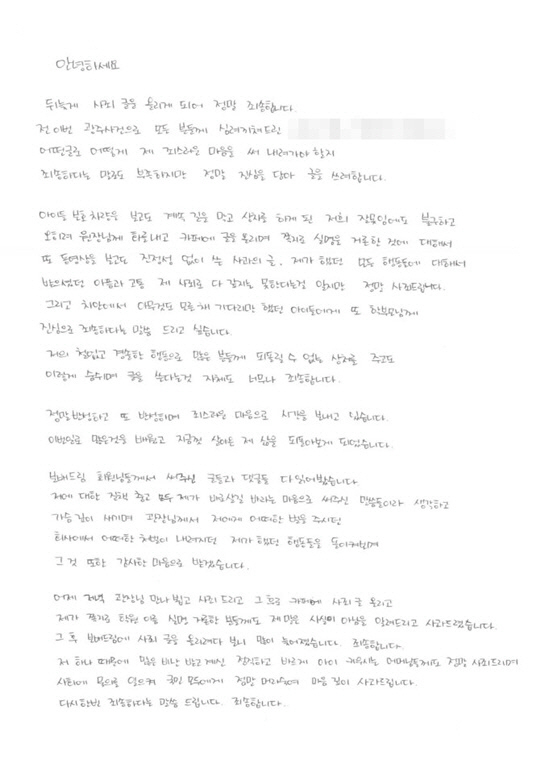 안녕하세요
뒤늦게 사죄 글을 올리게 되어 정말 죄송합니다.
전 이번 광주사건으로 모든 분들께 심려끼쳐드린
어떤글로 어떻게 제 죄스러운 마음을 써 내려가야할지
죄송하다는 말로도 부족하지만 정말 진심을 담아 글을 쓰려합니다.
아이들 보는 차량을 보고도 계속 길을 막고 상처를 하게 된 저희 잘못임에도 불구하고
오히려 원장님께 화를내고 카페에 글을 올리며 쪽지로 실명을 거론한 것에 대해서
또 동영상을 보고도 진정성 없이 쓴 사과의 글, 제가 했던 모든 행동들에 대해서
받으셨던 아픔과 고통 제 사죄로 다 갚지는 못한다는걸 알지만 정말 사죄드립니다.
그리고 차안에서 아무것도 모른채 기다리만 했던 아이들에게 또 학부모님께
진심으로 죄송하다는 말씀 드리고 싶습니다.
저의 철없고 경솔한 행동으로 많은 분들께 되돌릴 수 없는 상처를 주고도
이렇게 숨쉬며 글을 쓴다는것 자체도 너무나 죄송합니다.
정말 반성하고 또 반성하며 죄스러운 마음으로 시간을 보내고 있습니다.
이번일로 많은것을 배웠고 지금껏 살아온 제 삶을 되돌아보게 되었습니다.
보배드림 회원님들께서 써주신 글들과 댓글들 다 읽어봤습니다
저에 대한 질책 충고 모두 제가 바로살길 바라는 마음으로 써주신 말씀들이라 생각하고
가슴 깊이 새기며 관장님께서 저에게 어떠한 벌을 주시던
회사에서 어떠한 처벌이 내려지던 제가 했던 행동들을 돌이켜보며
그것 또한 감사한 마음으로 받겠습니다.
어제 저녁 관장님 만나 뵙고 사죄드리고 그 후로 카페에 사죄 글 올리고
제가 쪽지로 학원 이름 실명 거론한 분들께도 제 말은 사실이 아님을 알려드리고 사과드렸습니다.
그 후 보배드림에 사죄 글을 올리려다 보니 많이 늦어졌습니다. 죄송합니다.
저 하나 때문에 많은 비난 받고 계신 정직하고 바르게 아이 키우시는 어머님들께도 정말 사죄드리며
사회에 물의를 일으켜 국민 모두에게 정말 머리숙여 마음 깊이 사과드립니다.
다시한번 죄송하다는 말씀 드립니다. 죄송합니다.